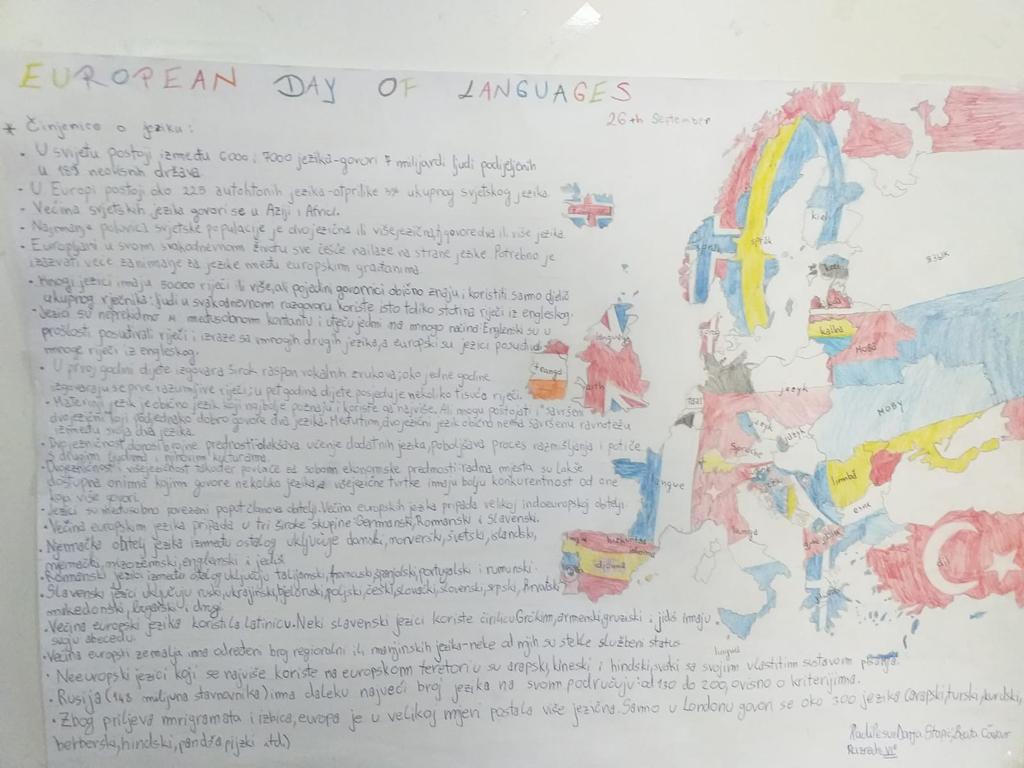 EUROPEAN DAY OF LANGUAGES
26th September
* Činjenice o jeziku:
• U svijetu postoji između 6000 i 7000 jezika-govori 7 milijardi ljudi podijeljenih
u 189 neovisnih država.
• U Europi postoji oko 225 autohtonih jezika-otprilike 3% ukupnog svjetskog jezika.
• Većina svjetskih jezika govori se u Aziji i Africi.
• Najmanje polovica svjetske populacije je dvojezična ili višejezična, tj. govore dva ili više jezika.
• Europljani u svom svakodnevnom životu sve češće nailaze na strane jezike. Potrebno je
izazvati veće zanimanje za jezike među europskim građanima.
• Mnogi jezici imaju 50000 riječi ili više, ali pojedini govornici obično znaju i koristiti samo djelić
ukupnog rječnika: ljudi u svakodnevnom razgovoru koriste isto toliko stotina riječi iz engleskog.
• Jezici su neprekidno u međusobnom kontaktu i utječu jedni na mnogo načina. Engleski su u
prošlosti posuđivali riječi i izraze sa mnogih drugih jezika, a europski su jezici posudili
mnoge riječi iz engleskog.
• U prvoj godini dijete izgovara širok raspon vokalnih zvukova; oko jedne godine
izgovaraju se prve razumljive riječi; u pet godina dijete posjeduje nekoliko tisuća riječi.
• Materinji jezik je obično jezik koji najbolje poznaju i koriste ga najviše. Ali mogu postojati i "savršeni
dvojezični" koji podjednako dobro govore dva jezika. Međutim, dvojezični jezik obično nema savršenu ravnotežu
između svoja dva jezika.
• Dvojezičnost donosi brojne prednosti: olakšava učenje dodatnih jezika, poboljšava proces razmišljanja i potiče
s drugim ljudima i njihovim kulturama.
• Dvojezičnost i višejezičnost također povlače za sobom ekonomske prednosti: radna mjesta su lakše
dostupna onima kojima govore nekoliko jezika, a višejezične tvrtke imaju bolju konkurentnost od one
koja više govori.
• Jezici su međusobno povezani poput članova obitelji. Većina europskih jezika pripada velikoj indoeuropskoj obitelji.
• Većina europskim jezika pripada u tri široke skupine: Germanski, Romanski i Slavenski.
• Njemačka obitelj jezika između ostalog uključuje danski, norverski, švetski, islandski,
njemački, nizozemski, englenski i jediš.
• Romanski jezici između ostalog uključuju talijanski, francuski, španjolski, portugalski i rumunski.
• Slavenski jezici uključuju ruski, ukrajinski, bjeloruski, poljski, češki, slovački, slovenski, srpski, hrvatski
makedonski, bugarski i drugi.
• Većina europski jezika koristila latinicu. Neki slavenski jezici koriste ćirilicu. Grčki, armenski, gruziski i jidiš imaju
svoju abecedu.
• Većina europski zemalja ima određeni broj regionalni ili manjinskih jezika-neke od njih su stekle službeni status.
• Neeuropski jezici koji se najviše koriste na europskom teretoriu su arapski, kineski i hindski, svaki sa svojim vlastitim sustavom pisanja.
• Rusija (148 milijuna stanovnika) ima daleku najveći broj jezika na svom području: od 130 do 200, ovisno o kriterijima.
• Zbog priljeva mrigramata i izbica, europa je u velikoj mjeri postala više jezična. Samo u Londonu govori se oko 300 jezika (arapski, turski, kurdski,
berberski, hindski, pandžapijzki itd.)
språk
kieli
keel
kalba
ЯЗЫК
МОВА
МОВУ
język
jazyk
Sprache
taal
language
teanga
langue
limbă
език
lingua
dil
idioma
Radile su: Darija Stapić, Beata
Razred: VI a